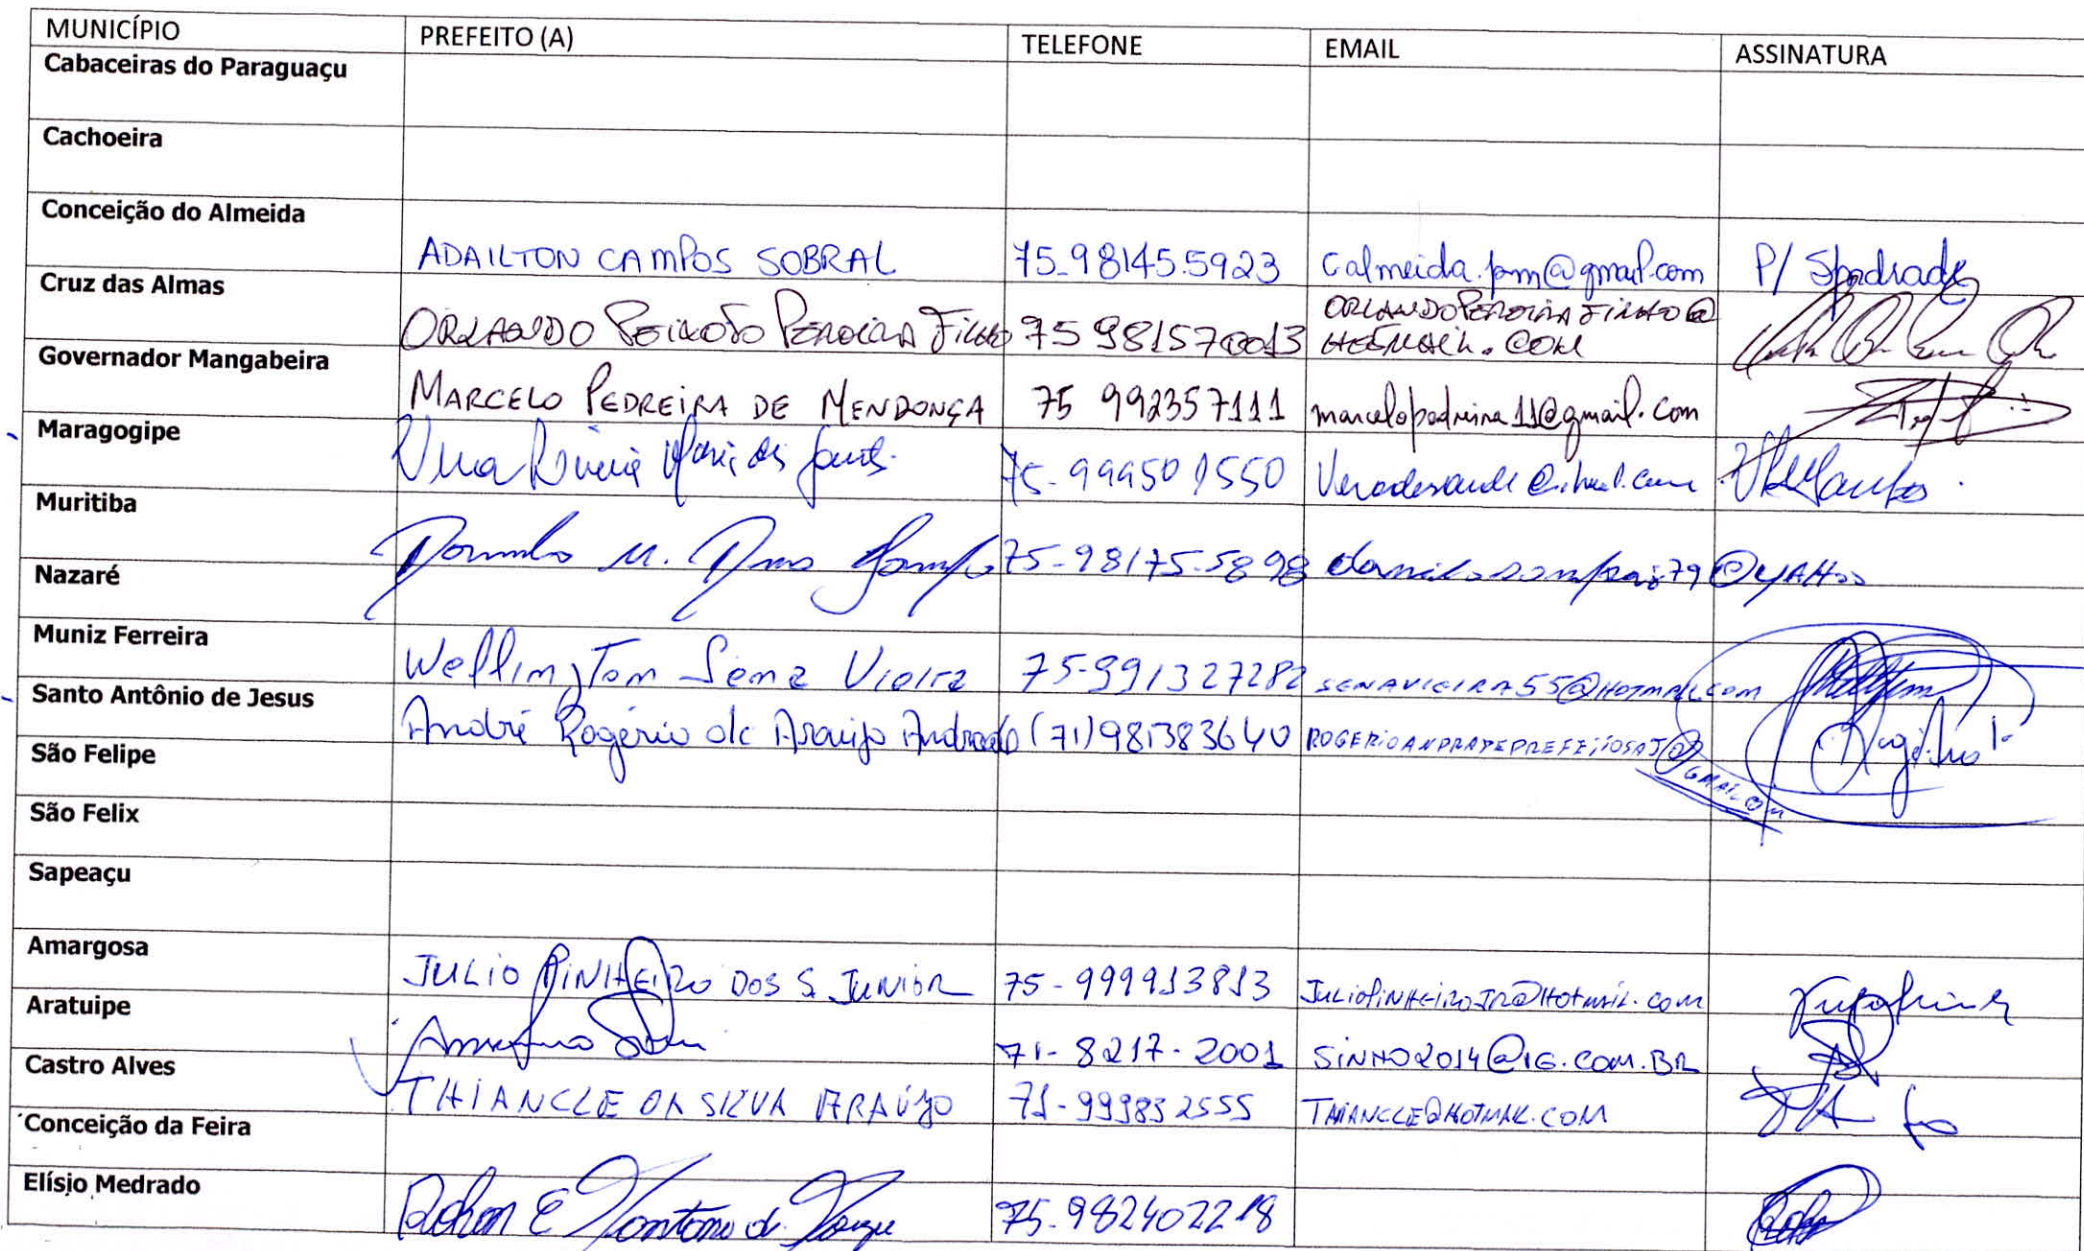 MUNICÍPIO PREFEITO (A) TELEFONE EMAIL ASSINATURA
Cabaceiras do Paraguaçu
Cachoeira
Conceição do Almeida ADAILTON CAMPOS SOBRAL 75-98145.5923 calmeida.pm@gmail.com P/
Cruz das Almas ORLANDO PEIXOTO PEREIRA FILHO 75 981570013 ORLANDOPEREIRAFILHO@
HOTMAIL.COM
Governador Mangabeira MARCELO PEDREIRA DE MENDONÇA 75 992357111 marcelopedreira11@gmail.com
Maragogipe 75-999501550
Muritiba 75-98175-5898
Nazaré
Muniz Ferreira Wellington Sena Vieira 75-991327282 SENAVIEIRA55@HOTMAIL.COM
Santo Antônio de Jesus André Rogério de Araujo Andrade (71) 981383640 ROGERIOANDRADEPREFEITOSAJ@
GMAIL.COM
São Felipe
São Felix
Sapeaçu
Amargosa JULIO PINHEIRO DOS S. JUNIOR 75-999913813 JULIOPINHEIROJR@HOTMAIL.COM
Aratuipe 71-8217-2001 SINHO2014@IG.COM.BR
Castro Alves THIANCLE DA SILVA ARAÚJO 71-999832555 THIANCLE@HOTMAIL.COM
Conceição da Feira
Elísio Medrado 75-982402218